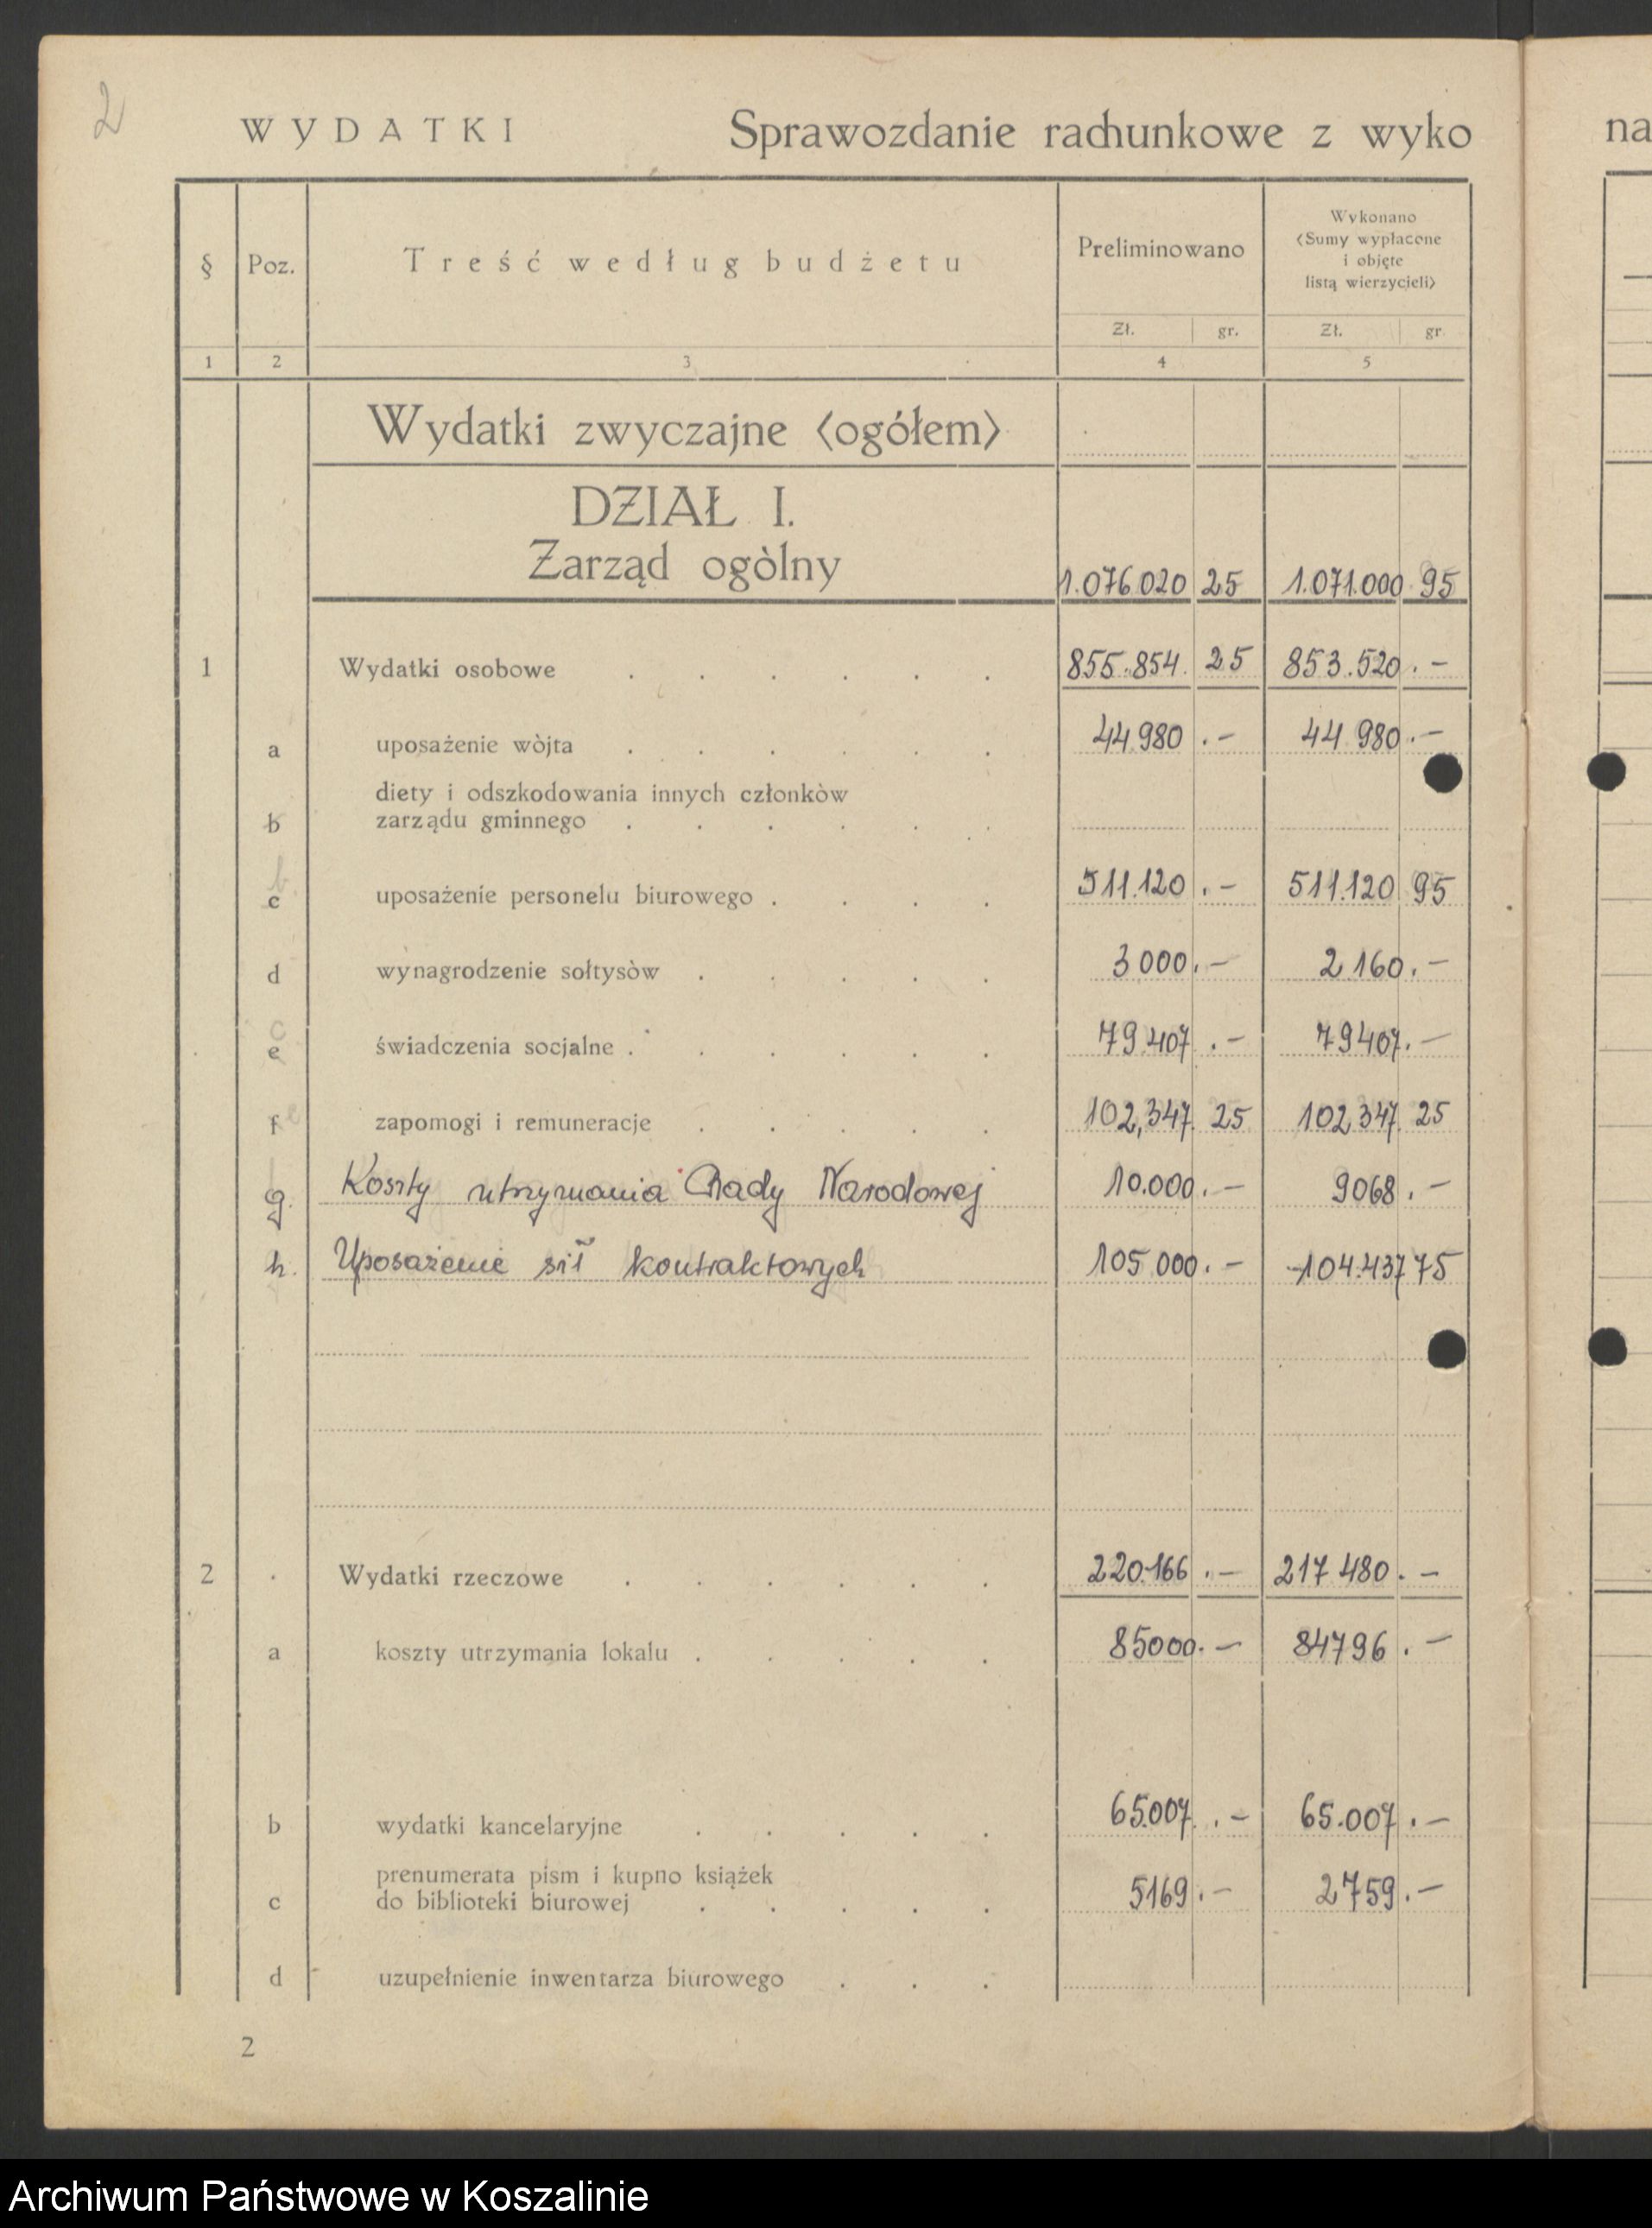 2
WYDATKI Sprawozdanie rachunkowe z wyko na
§ Poz. Treść według budżetu Preliminowano Wykonano
<Sumy wypłacone
i objęte
listą wierzycieli>
Zł. gr. Zł. gr.
1 2 3 4 5
Wydatki zwyczajne <ogółem>
DZIAŁ I.
Zarząd ogòlny 1.076.020 25 1.071.000 95
1 Wydatki osobowe . . . . . . 855.854. 25 853.520 . -
a uposażenie wòjta . . . . . . 44.980 . - 44.980 . -
diety i odszkodowania innych członkòw
b zarządu gminnego . . . . . .
b
c uposażenie personelu biurowego . . . . 511.120 . - 511.120 95
d wynagrodzenie sołtysòw . . . . . 3000 . - 2160 . -
c
e świadczenia socjalne . . . . . . 79.407 . - 79407 . -
f e zapomogi i remuneracje . . . . . 102,347 25 102.347 25
g. Koszty utrzymania Rady Narodowej 10.000 . - 9068 . -
h. Uposażenie sił kontraktowych 105.000 . - 104.437 75
2 . Wydatki rzeczowe . . . . . . 220.166 . - 217480 . -
a koszty utrzymania lokalu . . . . . 85000 . - 84796 . -
b wydatki kancelaryjne . . . . . 65.007 . - 65.007 . -
prenumerata pism i kupno książek
c do biblioteki biurowej . . . . . 5169 . - 2759 . -
d uzupełnienie inwentarza biurowego . . .
2
Archiwum Państwowe w Koszalinie